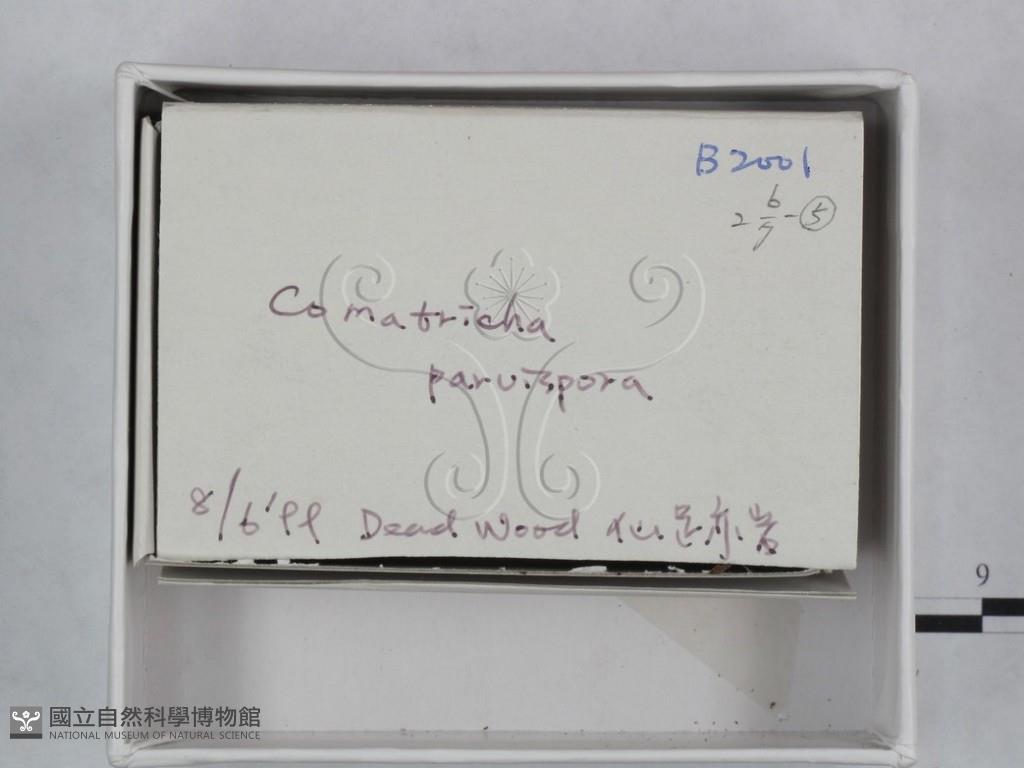 B2001
2 6/7-⑤
Comatricha
parvispora
8/6'99 Dead Wood 仙足赤岩
9
國立自然科學博物館
NATIONAL MUSEUM OF NATURAL SCIENCE